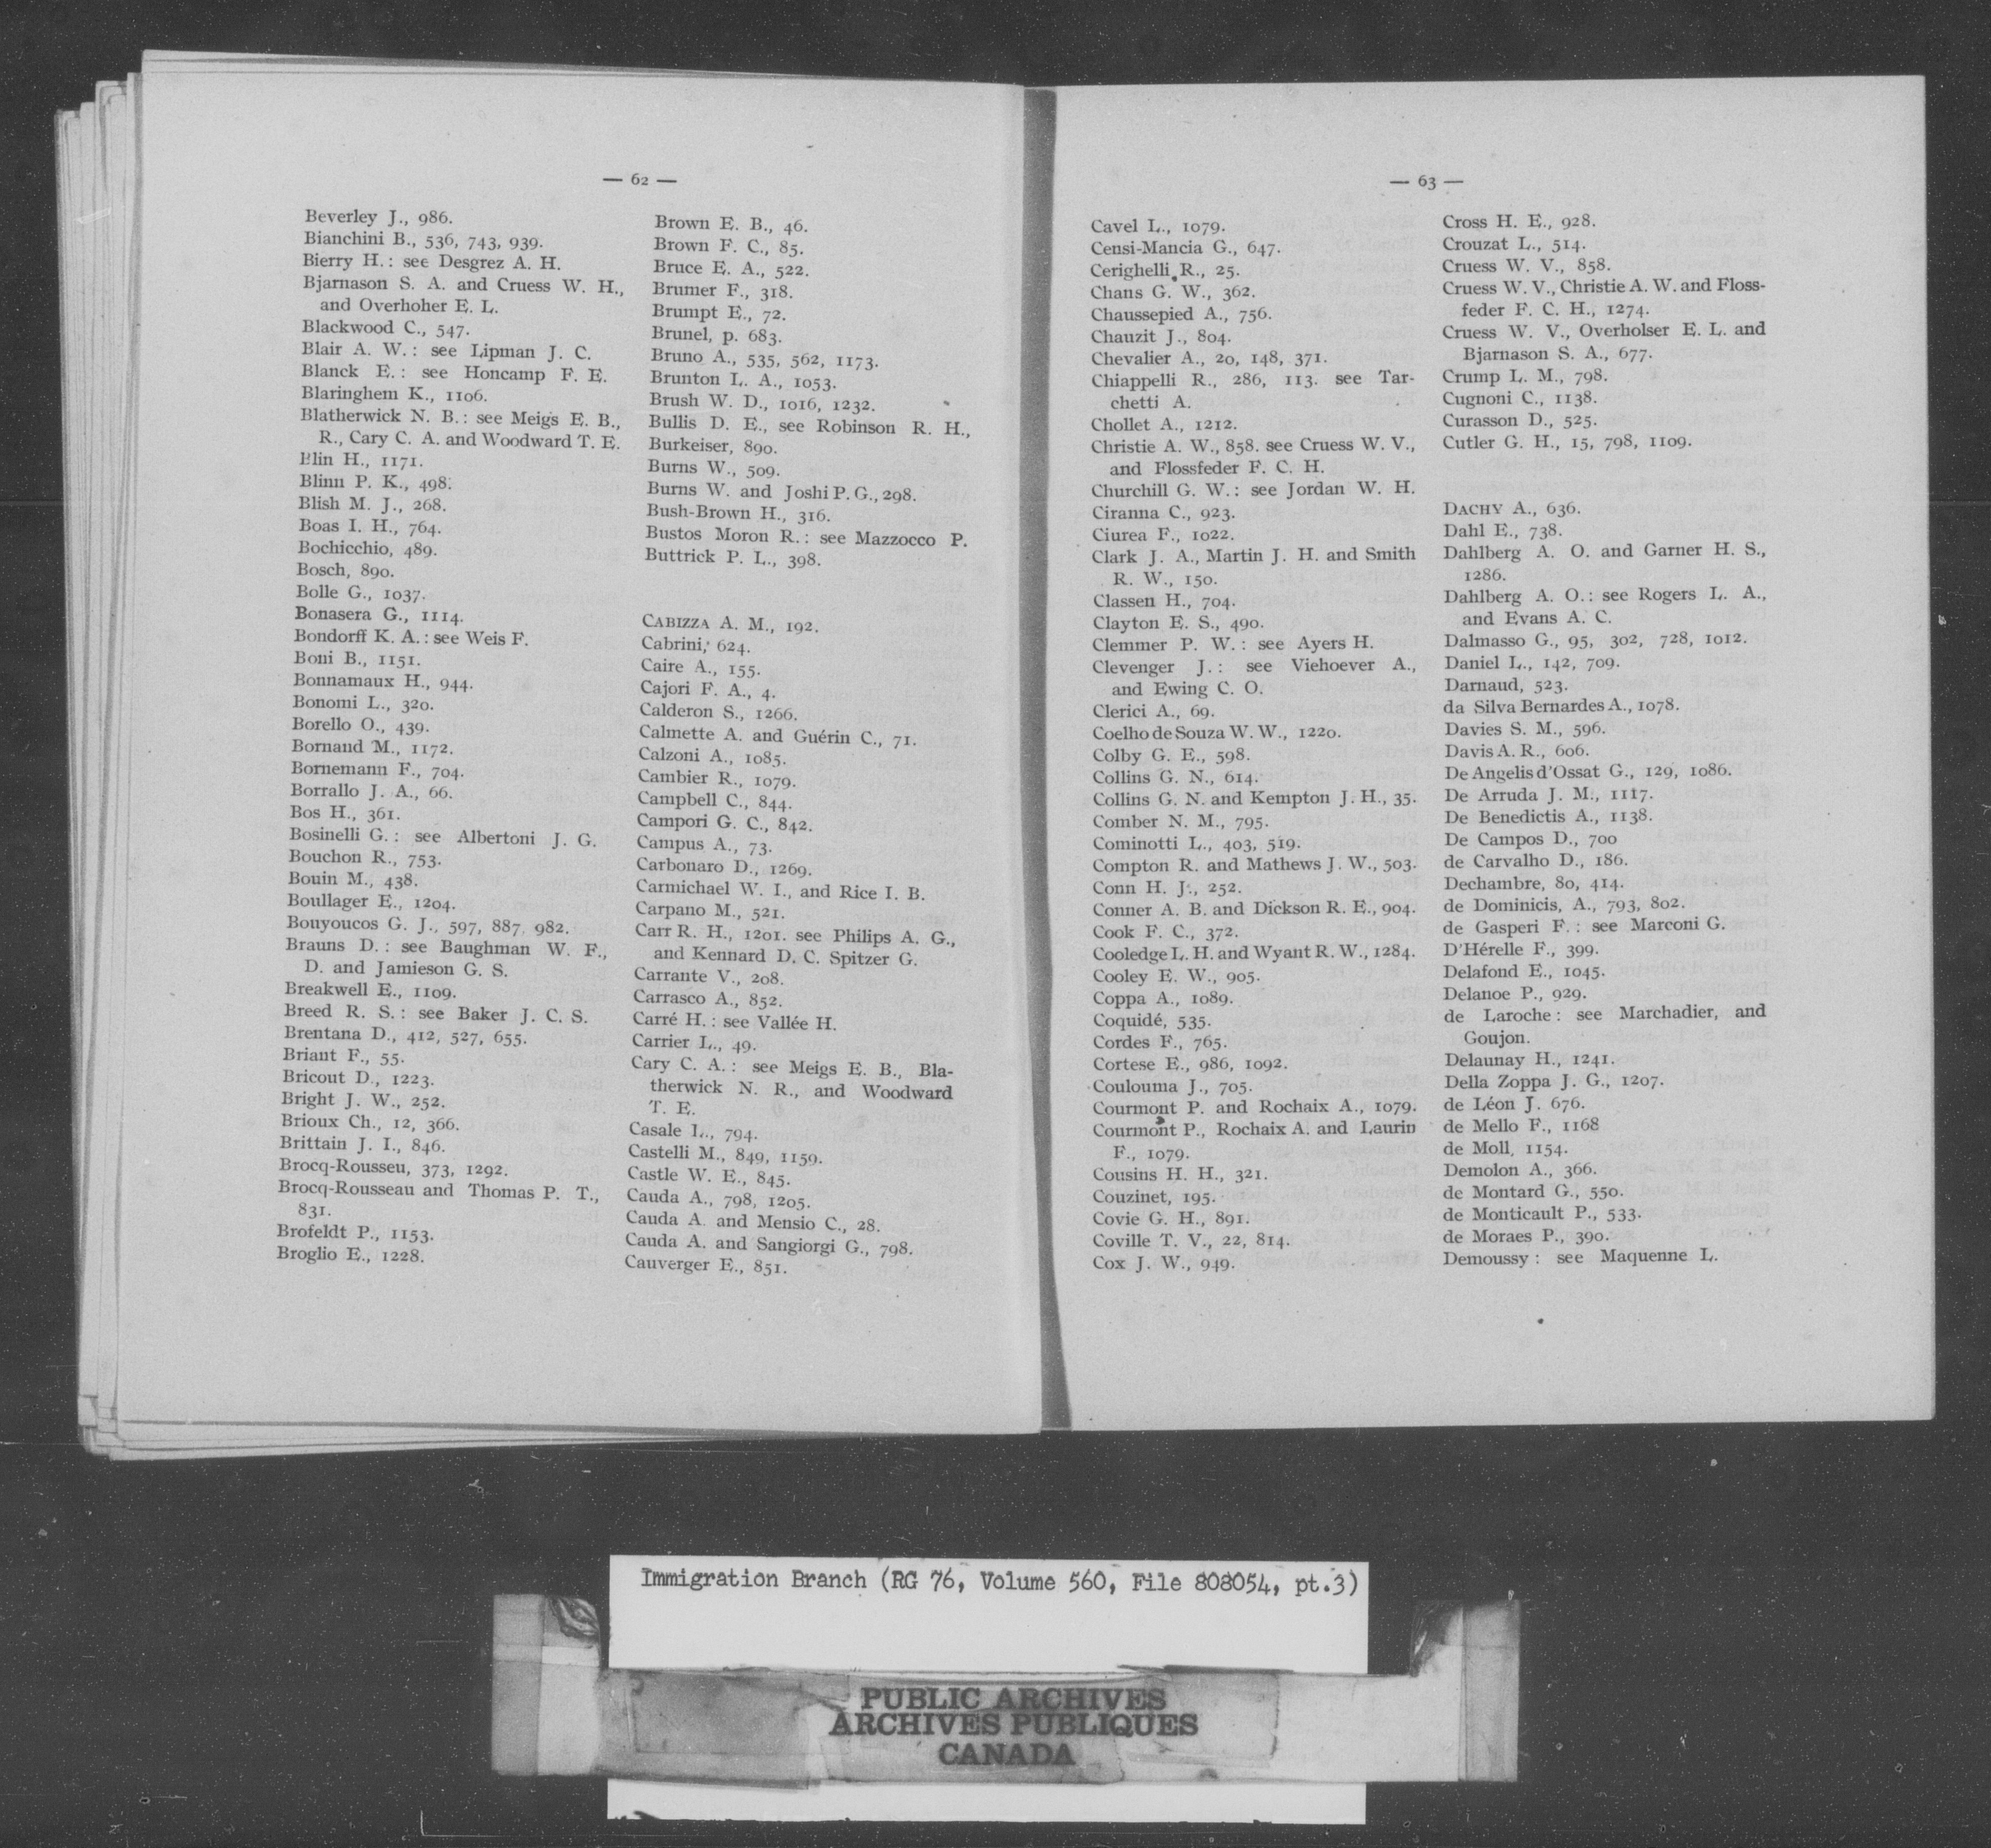 — 62 —
Beverley J., 986.
Bianchini B., 536, 743, 939.
Bierry H.: see Desgrez A. H.
Bjarnason S. A. and Cruess W. H.,
and Overhoher E. L.
Blackwood C., 547.
Blair A. W.: see Lipman J. C.
Blanck E.: see Honcamp F. E.
Blaringhem K., 1106.
Blatherwick N. B.: see Meigs E. B.,
R., Cary C. A. and Woodward T. E.
Blin H., 1171.
Blinn P. K., 498.
Blish M. J., 268.
Boas I. H., 764.
Bochicchio, 489.
Bosch, 890.
Bolle G., 1037.
Bonasera G., 1114.
Bondorff K. A.: see Weis F.
Boni B., 1151.
Bonnamaux H., 944.
Bonomi L., 320.
Borello O., 439.
Bornand M., 1172.
Bornemann F., 704.
Borrallo J. A., 66.
Bos H., 361.
Bosinelli G.: see Albertoni J. G.
Bouchon R., 753.
Bouin M., 438.
Boullager E., 1204.
Bouyoucos G. J., 597, 887, 982.
Brauns D.: see Baughman W. F.,
D. and Jamieson G. S.
Breakwell E., 1109.
Breed R. S.: see Baker J. C. S.
Brentana D., 412, 527, 655.
Briant F., 55.
Bricout D., 1223.
Bright J. W., 252.
Brioux Ch., 12, 366.
Brittain J. I., 846.
Brocq-Rousseu, 373, 1292.
Brocq-Rousseau and Thomas P. T.,
831.
Brofeldt P., 1153.
Broglio E., 1228.
Brown E. B., 46.
Brown F. C., 85.
Bruce E. A., 522.
Brumer F., 318.
Brumpt E., 72.
Brunel, p. 683.
Bruno A., 535, 562, 1173.
Brunton L. A., 1053.
Brush W. D., 1016, 1232.
Bullis D. E., see Robinson R. H.,
Burkeiser, 890.
Burns W., 509.
Burns W. and Joshi P. G., 298.
Bush-Brown H., 316.
Bustos Moron R.: see Mazzocco P.
Buttrick P. L., 398.
CABIZZA A. M., 192.
Cabrini, 624.
Caire A., 155.
Cajori F. A., 4.
Calderon S., 1266.
Calmette A. and Guérin C., 71.
Calzoni A., 1085.
Cambier R., 1079.
Campbell C., 844.
Campori G. C., 842.
Campus A., 73.
Carbonaro D., 1269.
Carmichael W. I., and Rice I. B.
Carpano M., 521.
Carr R. H., 1201. see Philips A. G.,
and Kennard D. C. Spitzer G.
Carrante V., 208.
Carrasco A., 852.
Carré H.: see Vallée H.
Carrier L., 49.
Cary C. A.: see Meigs E. B., Bla-
therwick N. R., and Woodward
T. E.
Casale L., 794.
Castelli M., 849, 1159.
Castle W. E., 845.
Cauda A., 798, 1205.
Cauda A. and Mensio C., 28.
Cauda A. and Sangiorgi G., 798.
Cauverger E., 851.
— 63 —
Cavel L., 1079.
Censi-Mancia G., 647.
Cerighelli R., 25.
Chans G. W., 362.
Chaussepied A., 756.
Chauzit J., 804.
Chevalier A., 20, 148, 371.
Chiappelli R., 286, 113. see Tar-
chetti A.
Chollet A., 1212.
Christie A. W., 858. see Cruess W. V.,
and Flossfeder F. C. H.
Churchill G. W.: see Jordan W. H.
Ciranna C., 923.
Ciurea F., 1022.
Clark J. A., Martin J. H. and Smith
R. W., 150.
Classen H., 704.
Clayton E. S., 490.
Clemmer P. W.: see Ayers H.
Clevenger J.: see Viehoever A.,
and Ewing C. O.
Clerici A., 69.
Coelho de Souza W. W., 1220.
Colby G. E., 598.
Collins G. N., 614.
Collins G. N. and Kempton J. H., 35.
Comber N. M., 795.
Cominotti L., 403, 519.
Compton R. and Mathews J. W., 503.
Conn H. J., 252.
Conner A. B. and Dickson R. E., 904.
Cook F. C., 372.
Cooledge L. H. and Wyant R. W., 1284.
Cooley E. W., 905.
Coppa A., 1089.
Coquidé, 535.
Cordes F., 765.
Cortese E., 986, 1092.
Coulouma J., 705.
Courmont P. and Rochaix A., 1079.
Courmont P., Rochaix A. and Laurin
F., 1079.
Cousins H. H., 321.
Couzinet, 195.
Covie G. H., 891.
Coville T. V., 22, 814.
Cox J. W., 949.
Cross H. E., 928.
Crouzat L., 514.
Cruess W. V., 858.
Cruess W. V., Christie A. W. and Floss-
feder F. C. H., 1274.
Cruess W. V., Overholser E. L. and
Bjarnason S. A., 677.
Crump L. M., 798.
Cugnoni C., 1138.
Curasson D., 525.
Cutler G. H., 15, 798, 1109.
DACHY A., 636.
Dahl E., 738.
Dahlberg A. O. and Garner H. S.,
1286.
Dahlberg A. O.: see Rogers L. A.,
and Evans A. C.
Dalmasso G., 95, 302, 728, 1012.
Daniel L., 142, 709.
Darnaud, 523.
da Silva Bernardes A., 1078.
Davies S. M., 596.
Davis A. R., 606.
De Angelis d'Ossat G., 129, 1086.
De Arruda J. M., 1117.
De Benedictis A., 1138.
De Campos D., 700
de Carvalho D., 186.
Dechambre, 80, 414.
de Dominicis, A., 793, 802.
de Gasperi F.: see Marconi G.
D'Hérelle F., 399.
Delafond E., 1045.
Delanoe P., 929.
de Laroche: see Marchadier, and
Goujon.
Delaunay H., 1241.
Della Zoppa J. G., 1207.
de Léon J. 676.
de Mello F., 1168
de Moll, 1154.
Demolon A., 366.
de Montard G., 550.
de Monticault P., 533.
de Moraes P., 390.
Demoussy: see Maquenne L.
Immigration Branch (RG 76, Volume 560, File 808054, pt.3)
PUBLIC ARCHIVES
ARCHIVES PUBLIQUES
CANADA